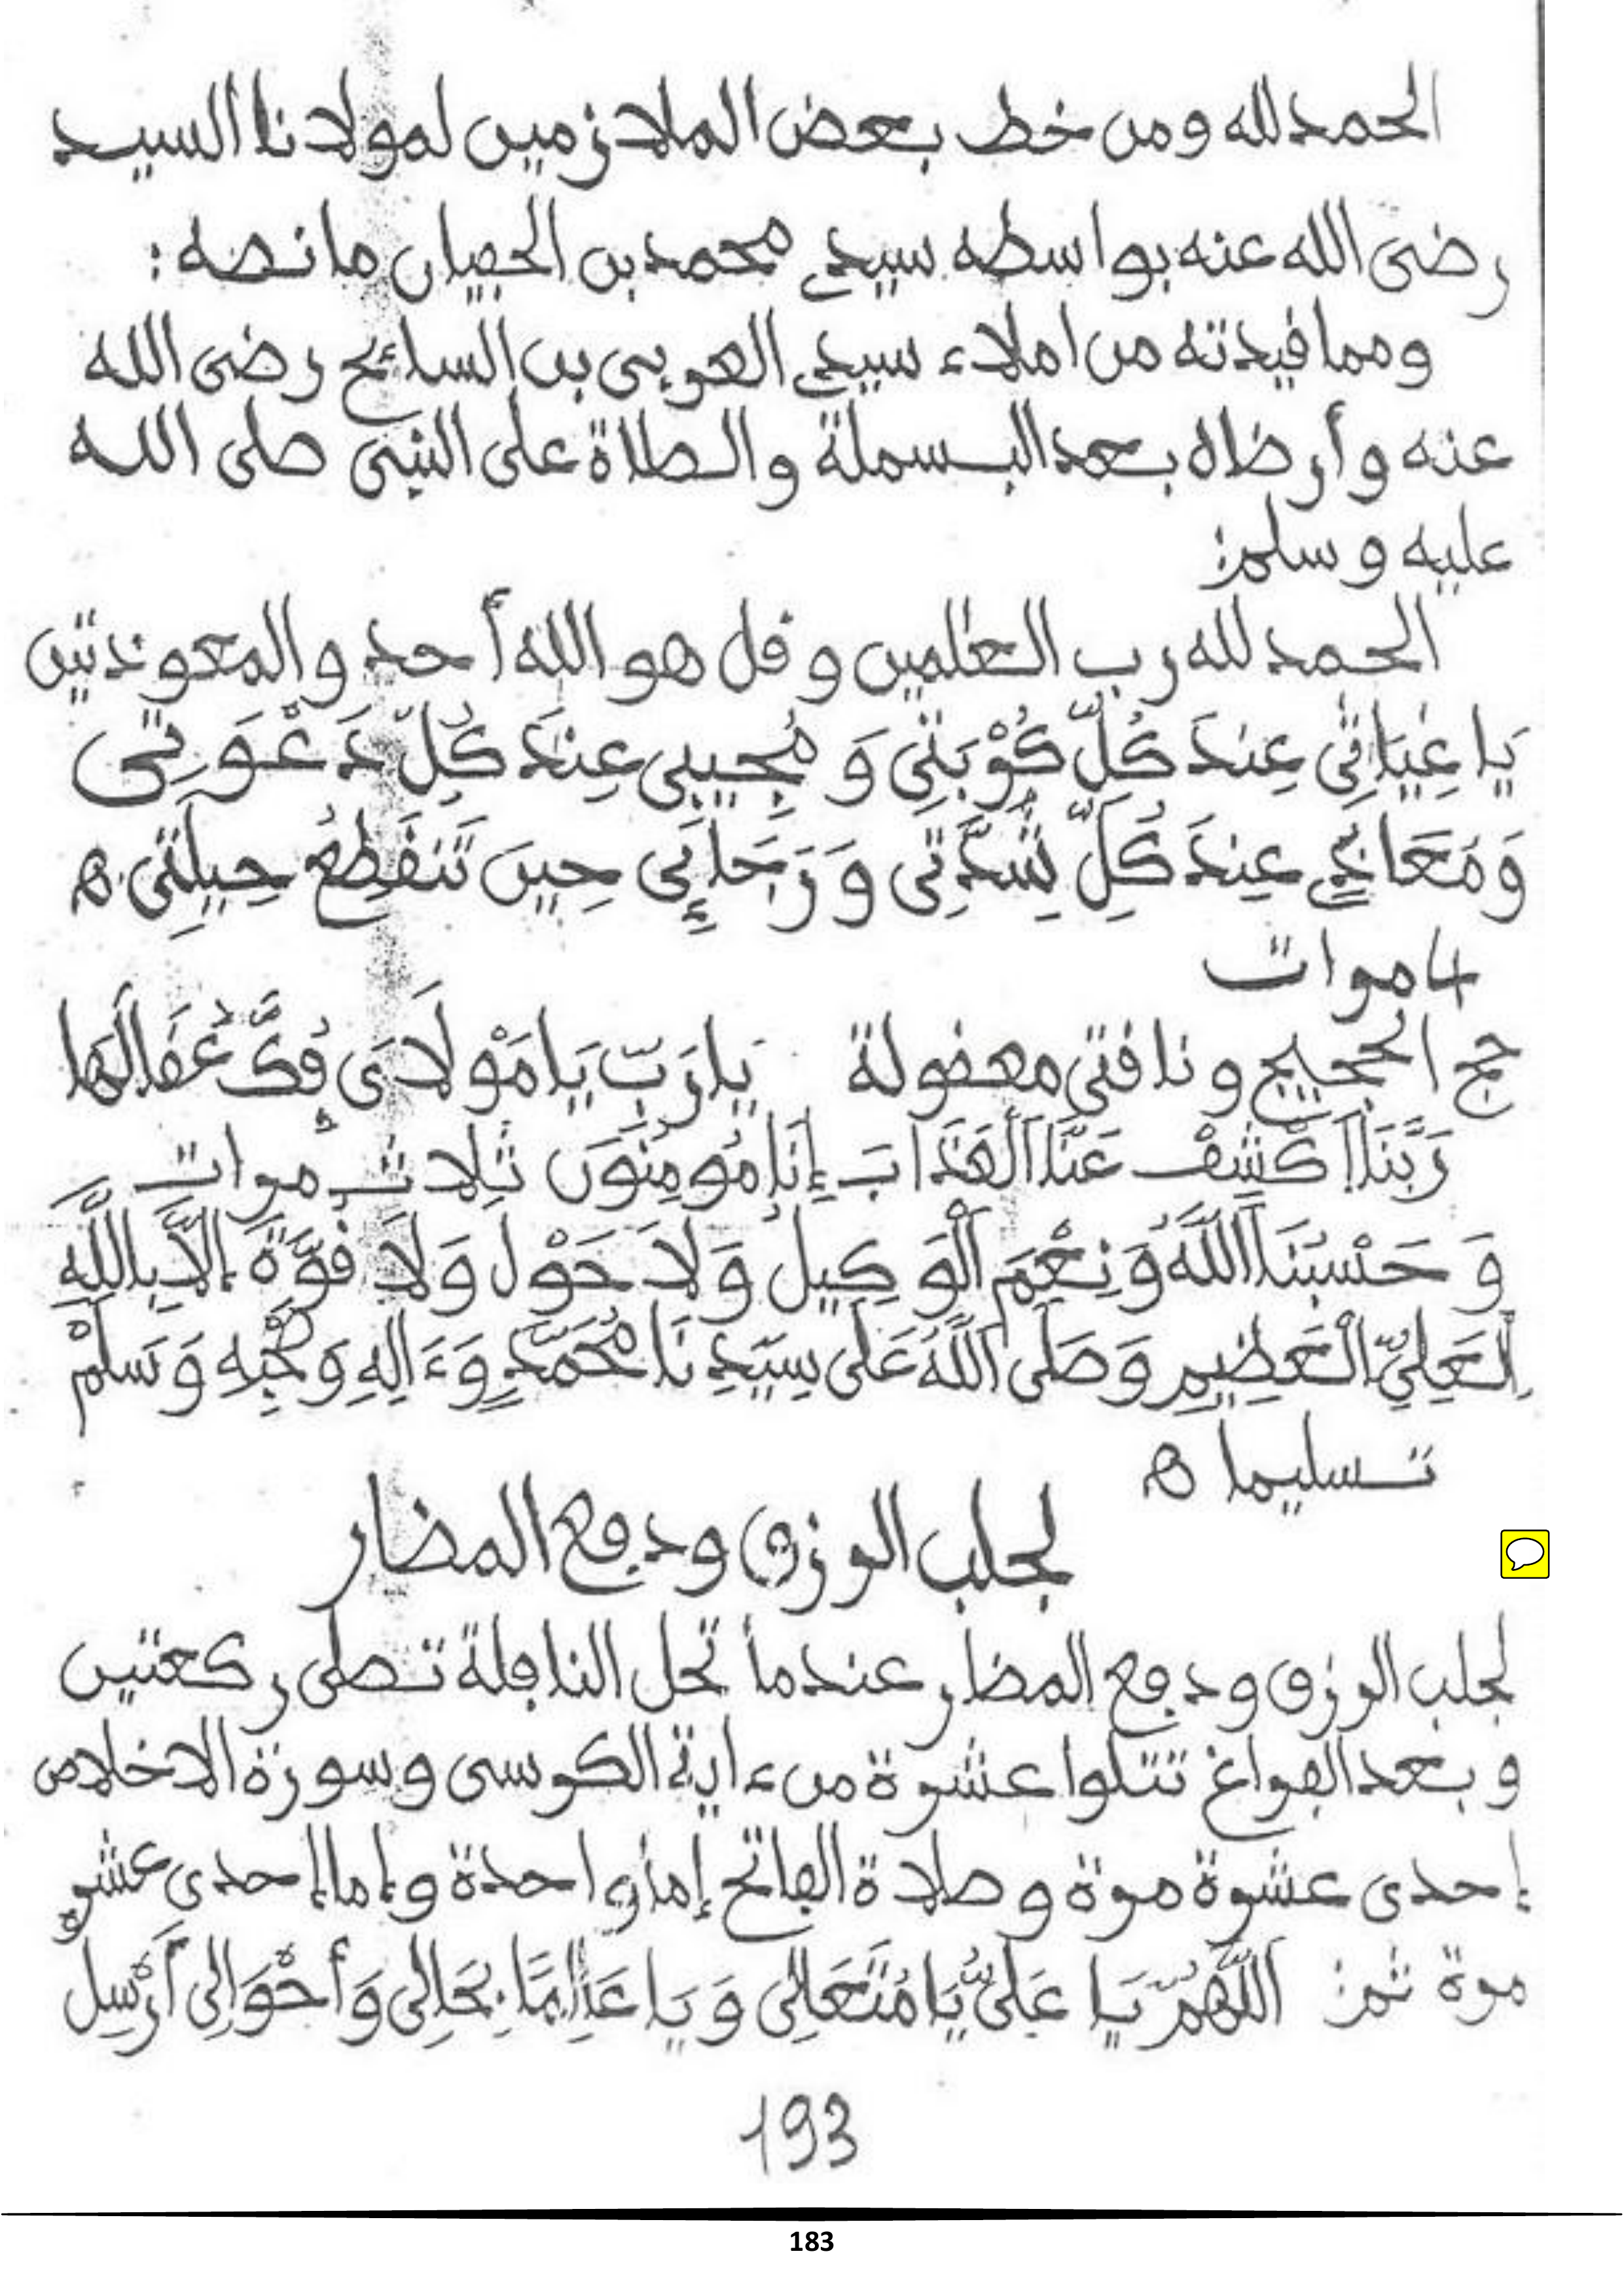 الحمد لله ومن خط بعض الملازمين لمولانا السيد
رضى الله عنه بواسطه سيدي محمد بن مانصه :
ومما قيدته من املاء سيدي العربى بن السائح رضى الله
عنه وأرضاه بعد البسملة والصلاة على النبى صلى الله
عليه وسلم :
الحمد لله رب العلمين وقل هو الله أحد والمعوذتين
يَا غِيَاثِي عِندَ كُلِّ كُرْبَتِي وَ مُجِيبِى عِندَ كُلِّ دَعْوَتِى
وَمَعَاذِي عِندَ كُلِّ شِدَّتِى وَرَجَاءِى حِينَ تَنقَطِعُ حِيلَتِى ه
4 مرات
حج الحجيج وناقتى معقولة يَارَبِّ يَا مَوْلَاىَ فُكَّ عُقَالَهَا
رَبَّنَا اَكْشِفْ عَنَّا اَلْعَذَابَ إِنَا مُومِنُونَ ثلاث مرات
وَحَسْبُنَا اَللَّهُ وَنِعْمَ اَلْوَكِيلُ وَلَا حَوْل وَلَا قُوَّةَ إِلَّا بِاللَّهِ
اِلْعَلِيِّ الْعَظِيمِ وَصَلَى اَللَّهُ عَلَى سِيَدِنَا مُحَمَّدٍ وَءَالِهِ وَصَحْبِهِ وَسَلَمْ
تسليما ه
لجلب الرزق ودفع المضار
لجلب الرزق ودفع المضار عندما تحل النافلة تصلى ركعتين
وبعد الفراغ تتلوا عشرة من ءاية الكرسى وسورة الاخلاص
إحدى عشرة مرة وصلاة الفاتح إما واحدة وإما إحدى عشرة
مرة ثم : اَللَّهُمَّ يَا عَلِىُّ يَا مُتَعَالِى وَيَا عَالِمًا بِحَالِى وَأَحْوَالِى أَرْسِل
193
183